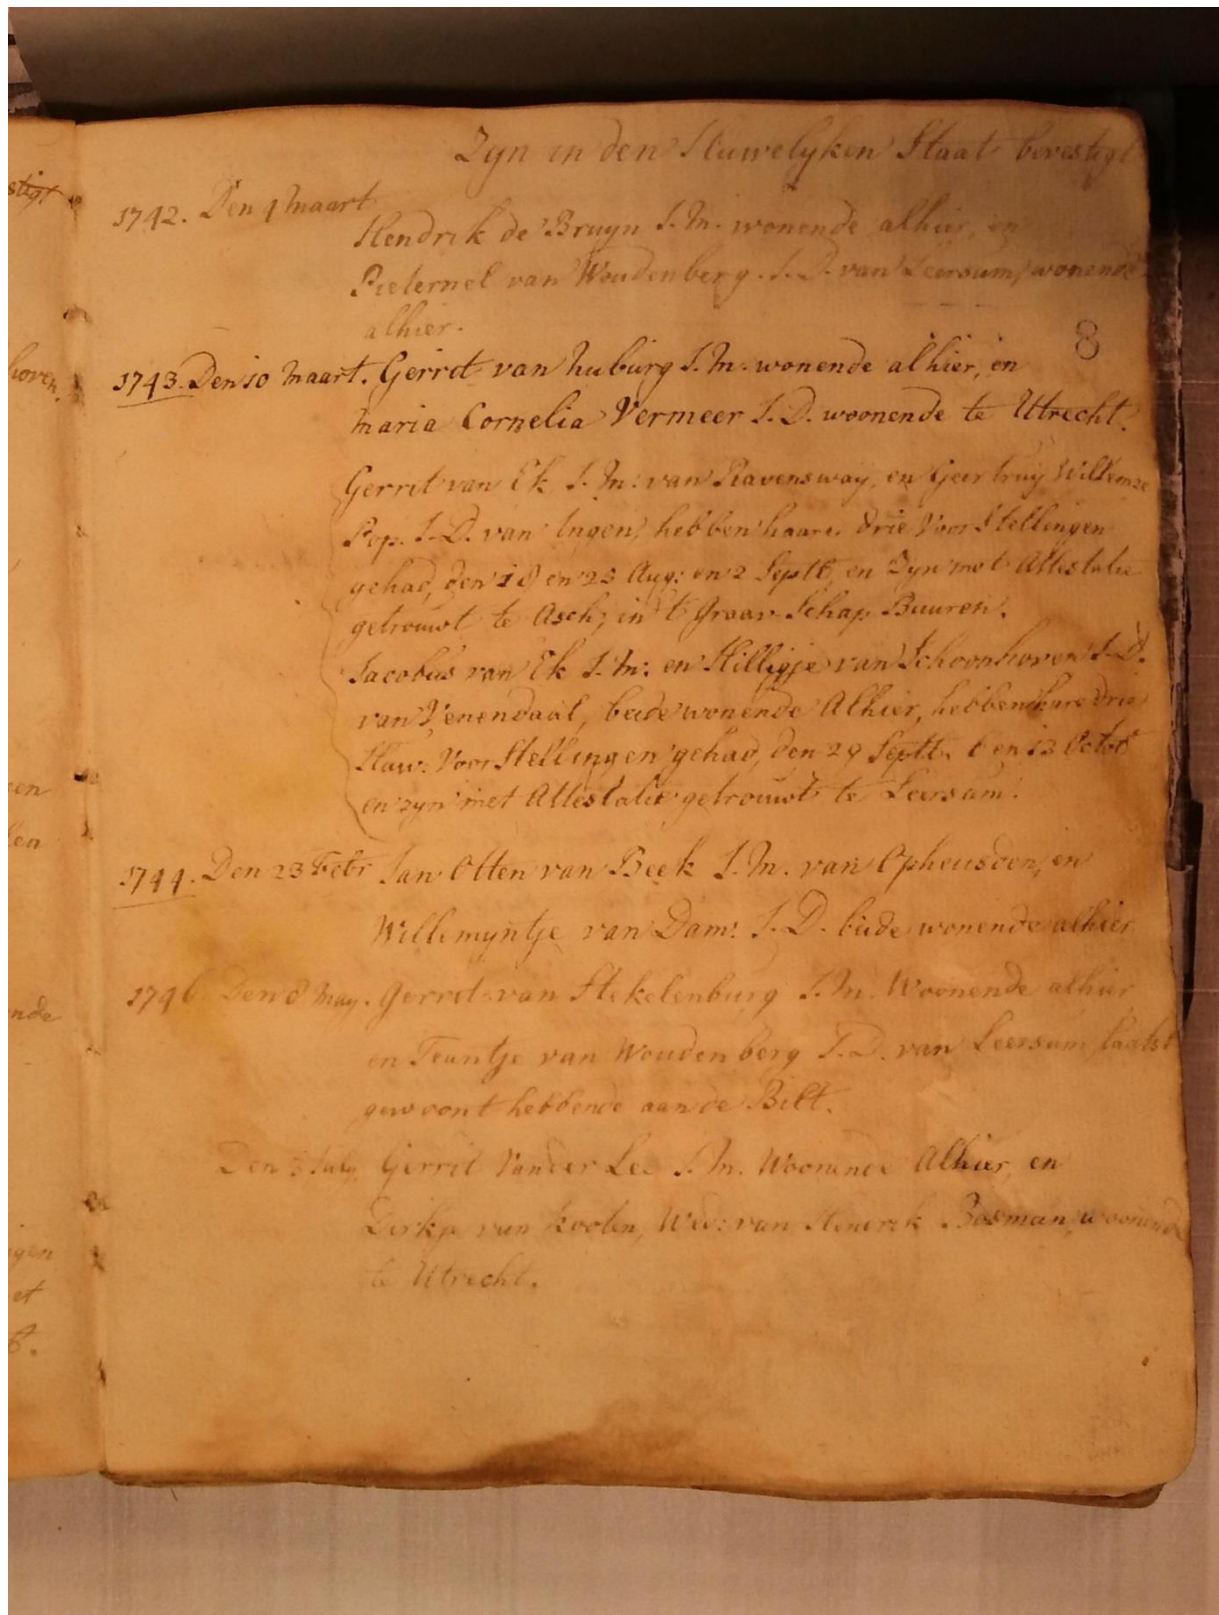 Zyn in den Huwelyken Staat bevestigt
1742. Den 4 maart
Hendrik de Bruyn J.M. wonende alhier, en
Pieternel van Woudenberg. J.D. van Leersum, wonende
alhier.
8
1743. Den 10 maart. Gerret van huburg J.M. wonende alhier, en
maria Cornelia Vermeer J.D. woonende te Utrecht.
Gerrit van Ek J.M: van Ravensway, en Geertruy Willemze
Pop. J.D. van Ingen, hebben haare drie Voorstellingen
gehad, den en 25 Aug: en 2 Septb, en zyn met Attestatie
getrouwt te Asch, in 't Graav Schap Buuren.
Jacobus van Ek J.M: en Hilligje van Schoonhoven J.D.
van Venendaal, beide wonende Alhier, hebben hare drie
Huw. Voorstellingen gehad, den 29 Septb. 6 en 13 Octob
en zyn met Attestatie getrouwt te Leersum.
1744. Den 23 Febr Jan Otten van Beek J.M. van Opheusden, en
Willemyntje van Dam. J.D. beide wonende alhier
1746 Den 8 may. Gerret van Stekelenburg J.M. Woonende alhier
en Teuntje van Woudenberg J.D. van Leersum laatst
gewoont hebbende aan de Bilt.
Den July. Gerrit Vander Lee J.M. Woonende Alhier, en
Dirkje van kooten, Wed: van Hendrik Bosman, woonende
te Utrecht.
stigt
hoven.
en
len
nde
gen
et
8.